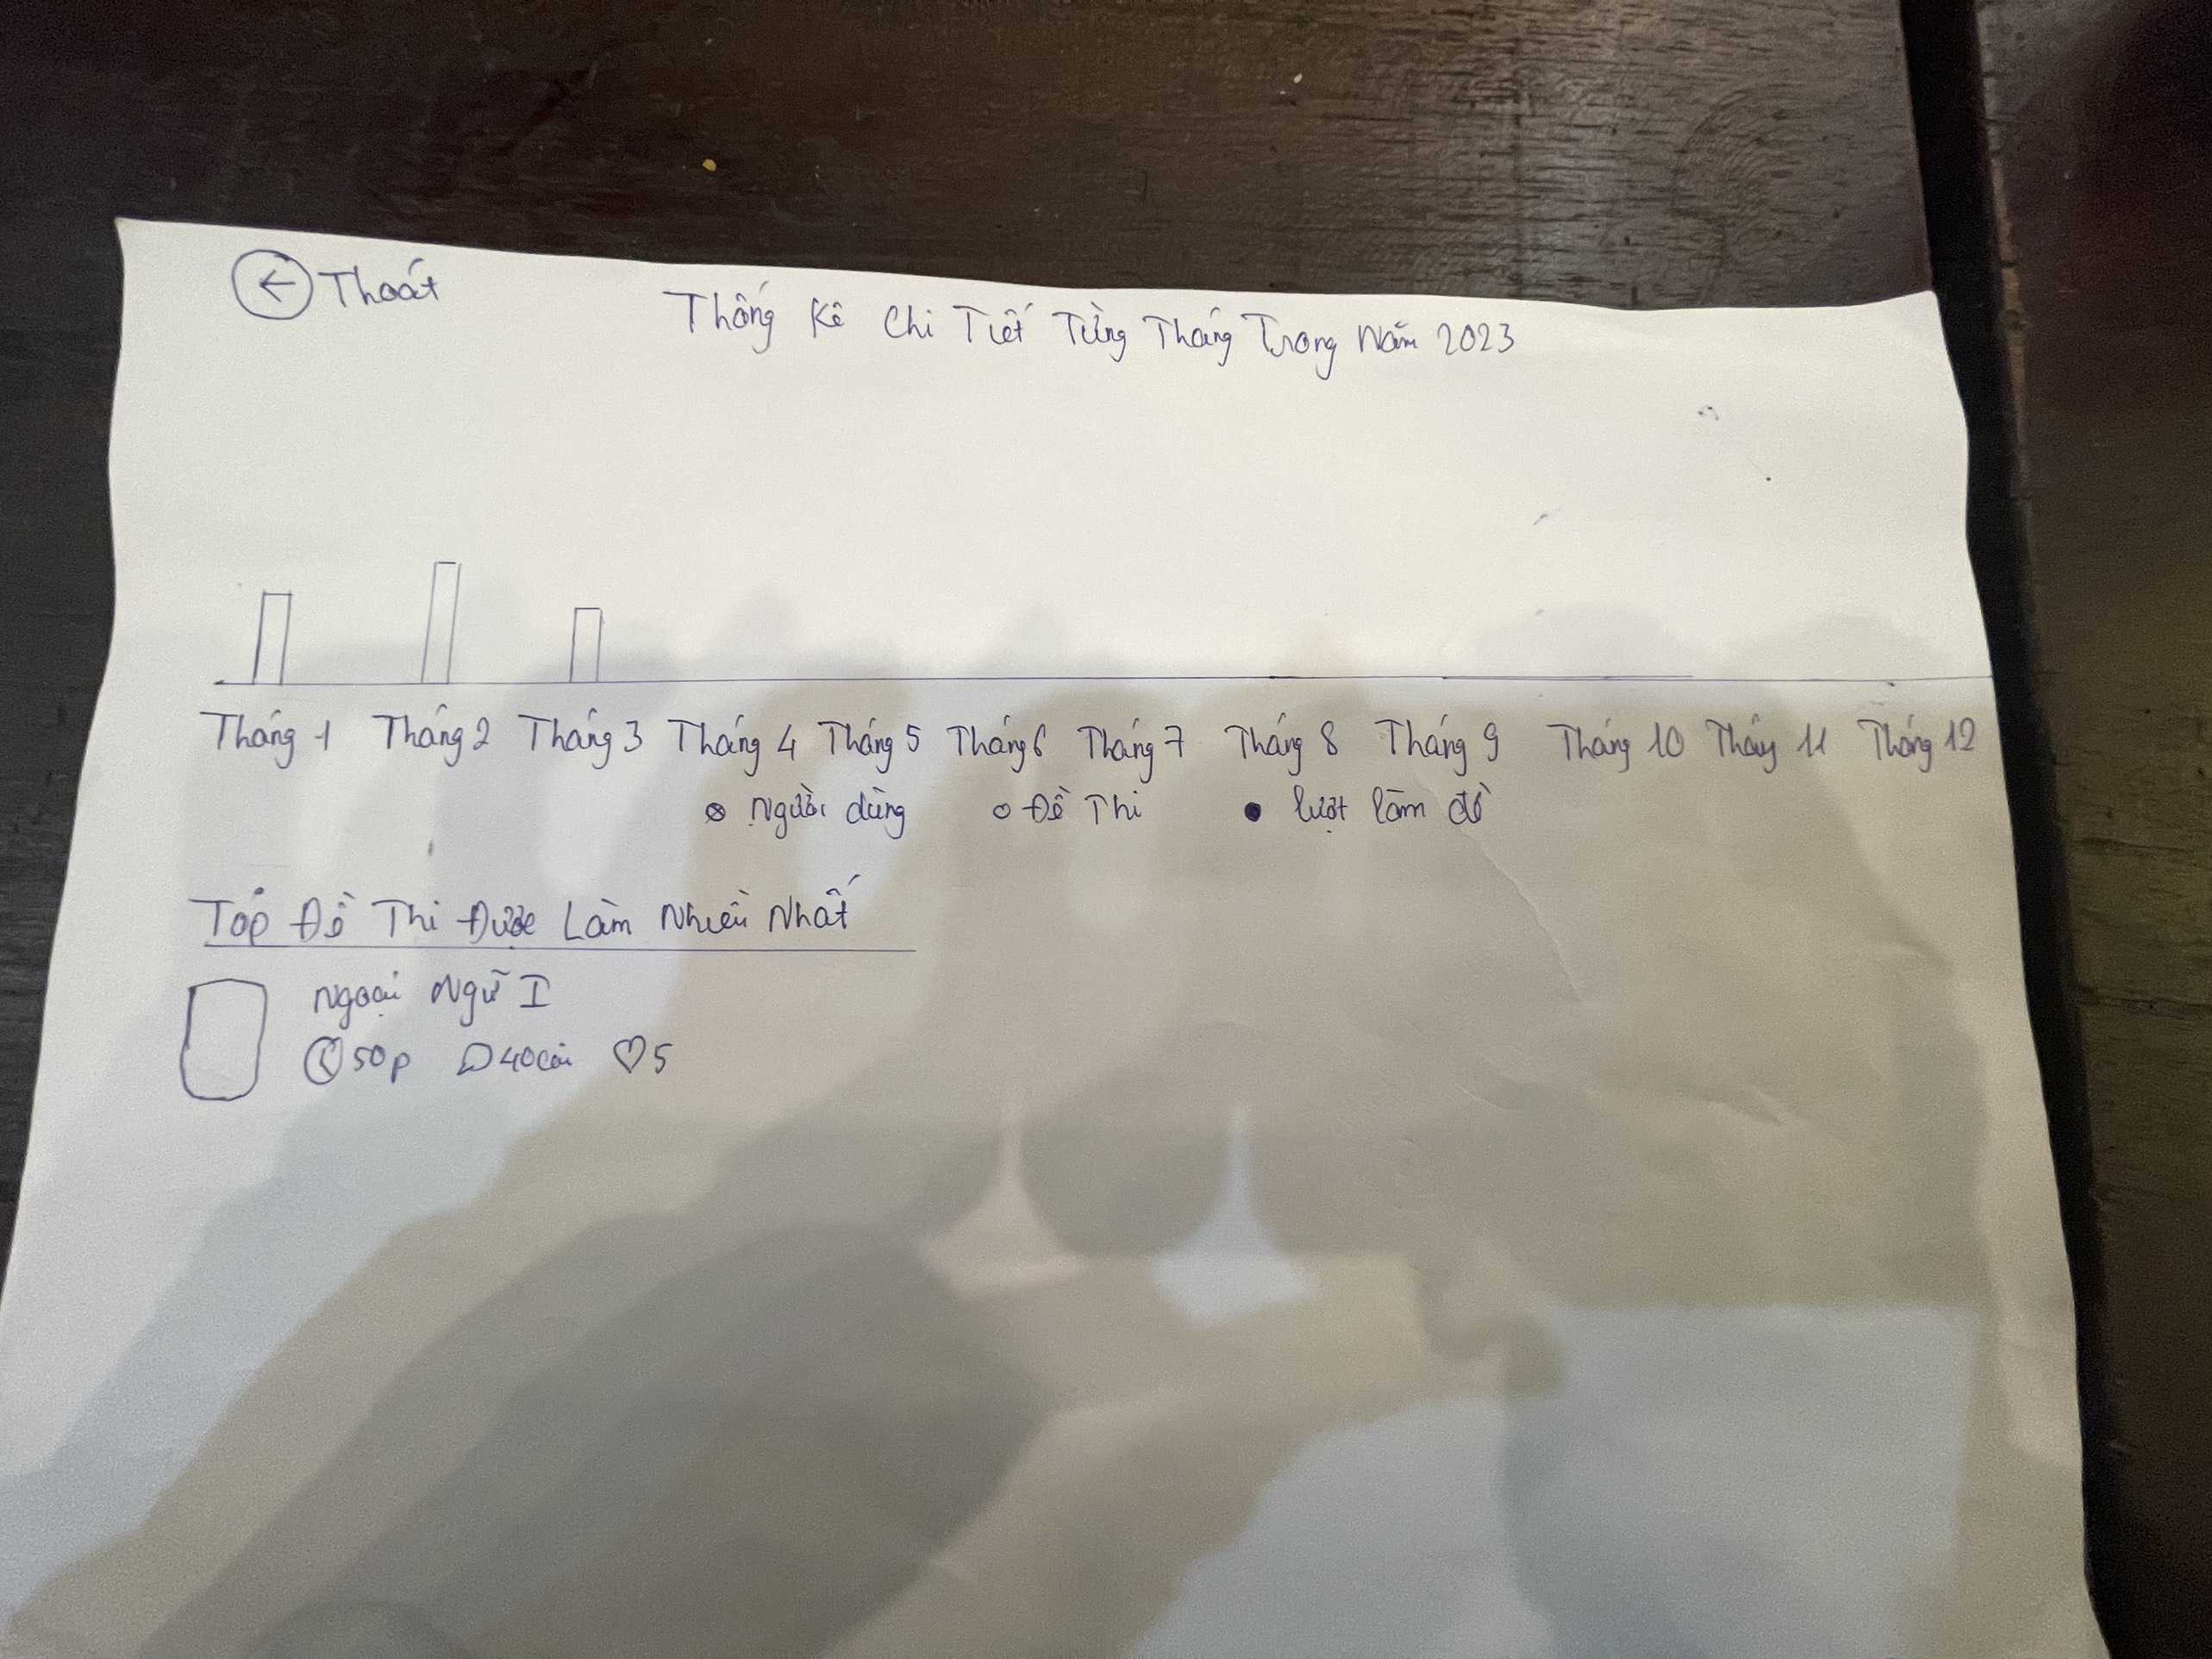 Thoát
Thống Kê Chi Tiết Từng Tháng Trong Năm 2023
Tháng 1 Tháng 2 Tháng 3 Tháng 4 Tháng 5 Tháng 6 Tháng 7 Tháng 8 Tháng 9 Tháng 10 Tháng 11 Tháng 12
Người dùng Đề Thi lượt làm đề
Top Đề Thi Được Làm Nhiều Nhất
Ngoại Ngữ I
50p 40câu 5